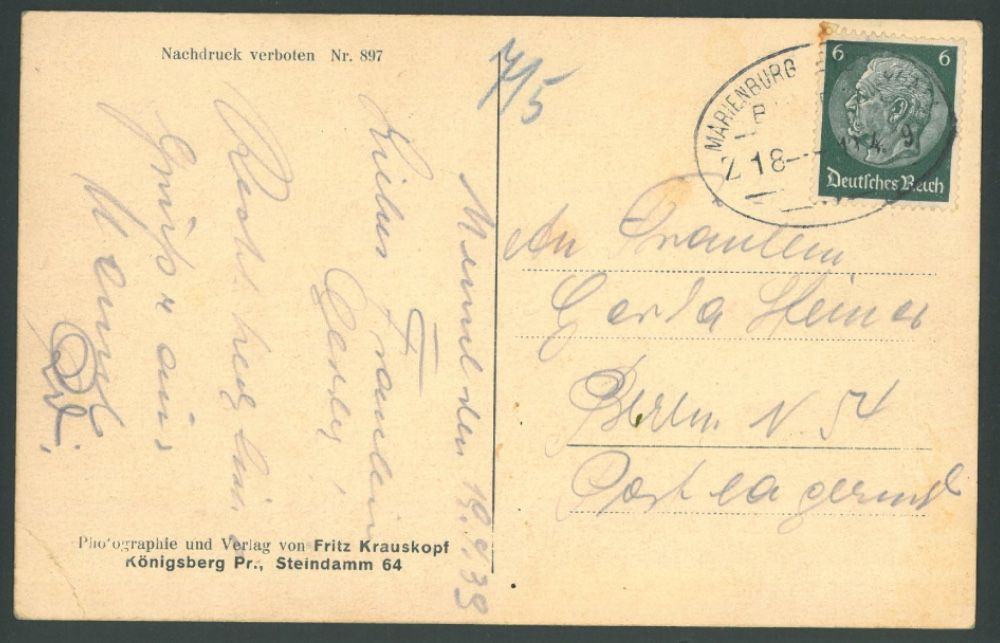 Nachdruck verboten Nr. 897
7/5
MARIENBURG
Z 18
6 6
Deutsches Reich
Memel den 19.4.39
Liebes Fräulein
Gerda,
Recht herzliche
Grüße aus
Memel
An Fräulein
Gerda Heines
Berlin N. 54
Postlagernd
Photographie und Verlag von Fritz Krauskopf
Königsberg Pr., Steindamm 64